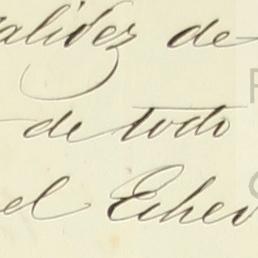 alidez de
de todo
el Echev